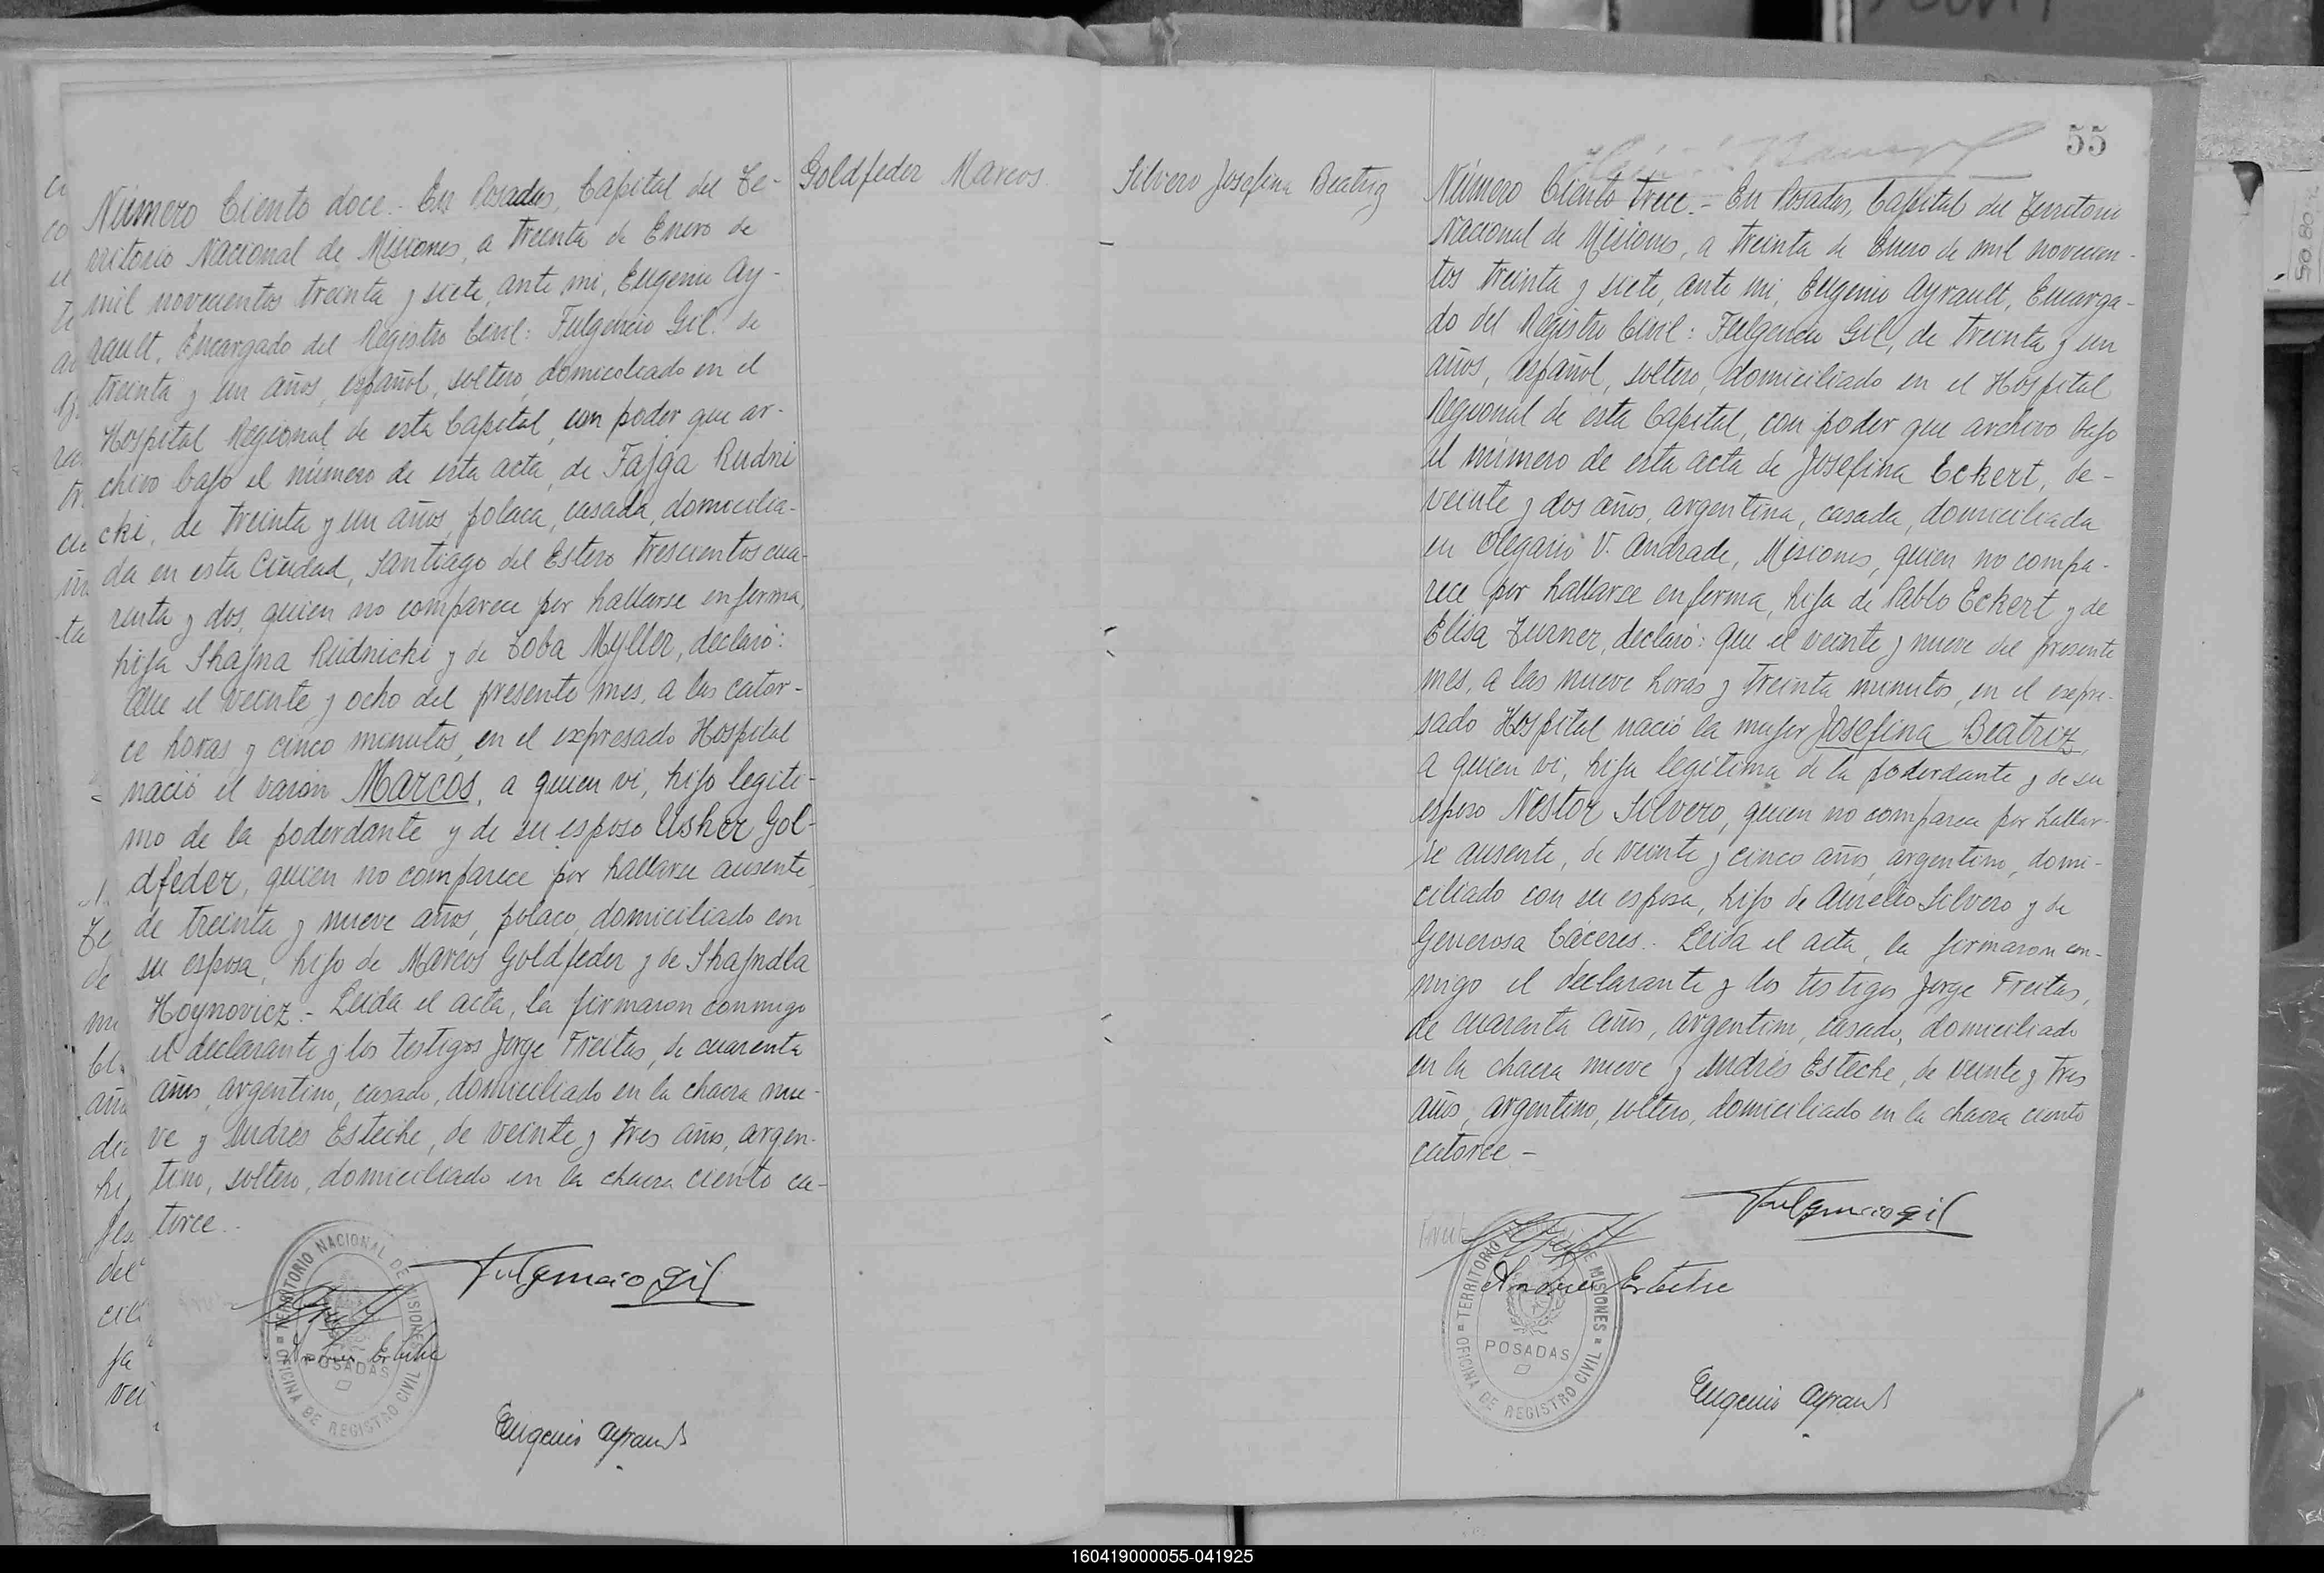 Goldfeder Marcos
Número Ciento doce.- En Posadas, Capital del Te-
rritorio Nacional de Misiones, a treinta de Enero de
mil novecientos treinta y siete, ante mi, Eugenio Ay-
rault, Encargado del Registro Civil: Fulgencio Gil, de
treinta y un años, español, soltero, domiciliado en el
Hospital Regional de esta Capital, con poder que ar-
chivo bajo el número de esta acta, de Fajga Rudni
cki, de treinta y un años, polaca, casada, domicilia-
da en esta Ciudad, Santiago del Estero trescientos cua-
renta y dos, quien no comparece por hallarse enferma,
hija Shajna Rudnicki y de Zoba Myller, declaró:
Que el veinte y ocho del presente mes, a las cator-
ce horas y cinco minutos, en el expresado Hospital
nació el varón Marcos, a quien vi, hijo legíti-
mo de la poderdante y de su esposo Usher Gol-
dfeder, quien no comparece por hallarse ausente,
de treinta y nueve años, polaco, domiciliado con
su esposa, hijo de Marcos Goldfeder y de Shajndla
Hoynovicz.- Leída el acta, la firmaron conmigo
el declarante y los testigos Jorge Freitas, de cuarenta
años, argentino, casado, domiciliado en la chacra nue-
ve y Andrés Esteche, de veinte y tres años, argen-
tino, soltero, domiciliado en la chacra ciento ca-
torce.
Fulgencio Gil
TERRITORIO NACIONAL DE MISIONES
POSADAS
OFICINA DE REGISTRO CIVIL
Andres Esteche
Eugenio Ayrault
55
Silvero Josefina Beatriz
Número Ciento trece.- En Posadas, Capital del Territorio
Nacional de Misiones, a treinta de Enero de mil novecien-
tos treinta y siete, ante mi, Eugenio Ayrault, Encarga-
do del Registro Civil: Fulgencio Gil, de treinta y un
años, español, soltero, domiciliado en el Hospital
Regional de esta Capital, con poder que archivo bajo
el número de esta acta de Josefina Eckert, de-
veinte y dos años, argentina, casada, domiciliada
en Olegario V. Andrade, Misiones, quien no compa-
rece por hallarse enferma, hija de Pablo Eckert y de
Elisa Zurner, declaró: Que el veinte y nueve del presente
mes, a las nueve horas y treinta minutos, en el expre-
sado Hospital nació la mujer Josefina Beatriz,
a quien vi, hija legítima de la poderdante y de su
esposo Nestor Silvero, quien no comparece por hallar-
se ausente, de veinte y cinco años, argentino, domi-
ciliado con su esposa, hijo de Aurelio Silvero y de
Generosa Cáceres.- Leída el acta, la firmaron con-
migo el declarante y los testigos Jorge Freitas,
de cuarenta años, argentino, casado, domiciliado
en la chacra nueve y Andrés Esteche, de veinte y tres
años, argentino, soltero, domiciliado en la chacra ciento
catorce-
Fulgencio Gil
Andres Esteche
TERRITORIO NACIONAL DE MISIONES
POSADAS
OFICINA DE REGISTRO CIVIL
Eugenio Ayrault
160419000055-041925